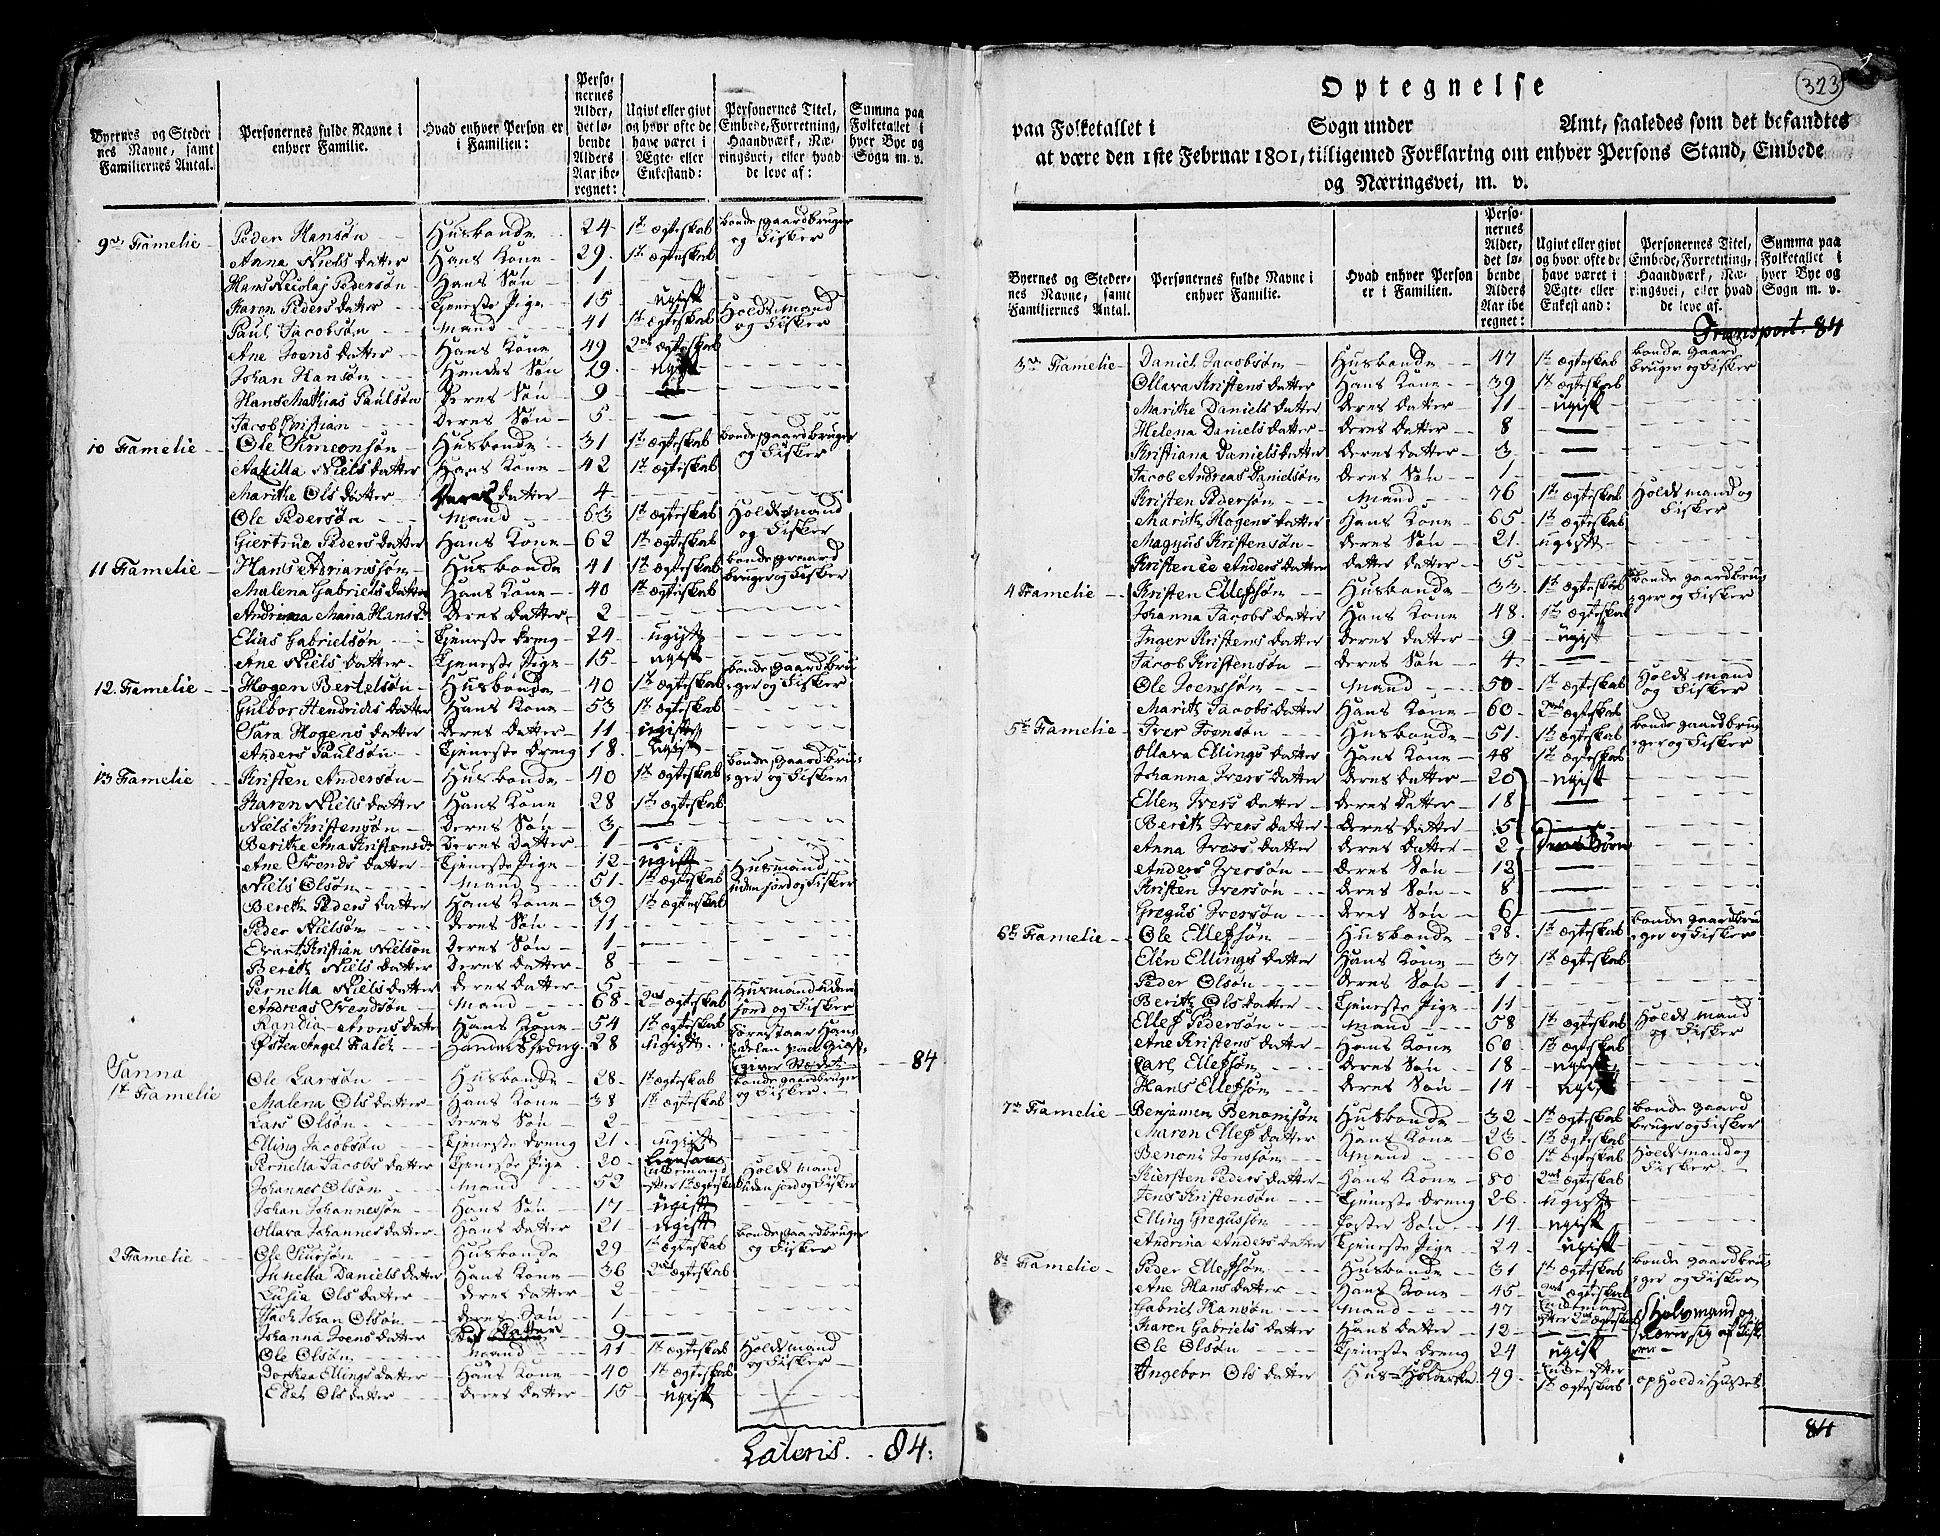 Byernes og Steder
nes Navne, samt
Familiernes Antal.
Personernes fulde Navne i
enhver Familie.
Hvad enhver Person er
i Familien:
Perso-
nernes
Alder,
det lø-
bende
Alders
Aar ibe-
regnet:
Ugivt eller givt
og hvor ofte de
have været i
Ægte- eller
Enkestand:
Personernes Titel,
Embede, Forretning,
Haandværk, Næ-
ringsvei, eller hvad
de leve af:
Summa paa
Folketallet i
hver Bye og
Sogn m. v.
9de Famelie Peder Hansøn Husbonde 24 1te ægteskab bonde gaardbruger
og Fisker
Anna Niels datter Hans Kone 29 1te ægteskab
Hans Nicolaj Pedersøn Hans Søn 1
Karen Peders datter Tjeneste Pige 15 ugift
Paul Jacobsøn Mand 41 1te ægteskab Holds mand
og Fisker
Ane Joens datter Hans Kone 49 2det ægteskab
Johan Hansøn Hendes Søn 29 ugift
Hans Mathias Paulsøn Deres Søn 9 —
Jacob Cristian Deres Søn 5 —
10 Famelie Ole Simeonsøn Husbonde 31 1te ægteskab bonde gaardbruger
og Fisker
Niels datter Hans Kone 42 1te ægteskab
Maritke Ols datter Deres datter 4
Ole Pedersøn Mand 63 1te ægteskab Holds mand
og Fisker
Giertrue Peders datter Hans Kone 62 1te ægteskab
11 Famelie Hans Adrianssøn Husbonde 41 1te ægteskab bonde gaard
bruger og Fisker
Malena Gabriels datter Hans Kone 40 1te ægteskab
Maria Hansd. Deres datter 2
Elias Gabrielsøn Tjeneste dreng 24 ugift
Ane Niels datter Tjeneste Pige 15 ugift
12 Famelie Hogen Bertelsøn Husbonde 40 1te ægteskab bonde gaardbru
ger og Fisker
Gulbor Hendrichs datter Hans Kone 53 1te ægteskab
Sara Hogens datter Deres datter 11 ugift
Anders Paulsøn Tjeneste dreng 18 ugift
13 Famelie Kristen Andersøn Husbonde 40 1te ægteskab bonde gaardbru-
ger og Fisker
Karen Niels datter Hans Kone 28 1te ægteskab
Niels Kristensøn Deres Søn 3 —
Beritke Ana Kristensd. Deres datter 1 —
Ane Svends datter Tjeneste Pige 12 ugift
Niels Olsøn Mand 51 1te ægteskab Husmand
uden jord og Fisker
Berith Peders datter Hans Kone 39 1te ægteskab
Peder Nielsøn Deres Søn 11
Evart Kristian Nielsøn Deres Søn 1
Berith Niels datter Deres datter 8
Pernella Niels datter Deres datter 5
Andreas Svendsøn Mand 68 2det ægteskab Husmand uden
jord og Fisker
Randia Arons datter Hans Kone 54 1te ægteskab
Østen Angel Falch Handels dreng 28 ugift Forestaar Han
delen paa Giæst
giver Stædet 84
Sanna
1te Famelie Ole Larsøn Husbonde 28 1te ægteskab bonde gaardbruger
og Fisker
Malena Ols datter Hans Kone 38 1te ægteskab
Lars Olsøn Deres Søn 2
Elling Jacobsøn Tjeneste dreng 21 ugift
Pernella Jacobs datter Tjeneste Pige 20
Johannes Olsøn Mand 52 Enkemand
efter 1te ægteskab Holds mand
uden jord og Fisker
Johan Johannessøn Hans Søn 17 ugift
Ollava Johannes datter Hans datter 21 ugift
2 Famelie Ole Siursøn Husbonde 29 1te ægteskab bonde gaardbruger
og Fisker
Daniels datter Hans Kone 36 2det ægteskab
Lusia Ols datter Deres datter 2
Johan Olsøn Deres Søn 1
Johanna Joens datter datter 9 —
Ole Olsøn Mand 41 1te ægteskab Holds mand
og Fisker
Dorthea Ellings datter Hans Kone 40 1te ægteskab
Ols datter Deres datter 15 ugift
Lateris. 84.
323
Optegnelse
paa Folketallet i Sogn under Amt, saaledes som det befandtes
at være den 1ste Februar 1801, tilligemed Forklaring om enhver Persons Stand, Embede
og Næringsvei, m. v.
Byernes og Steder-
nes Navne, samt
Familiernes Antal.
Personernes fulde Navne i
enhver Familie.
Hvad enhver Person
er i Familien.
Perso-
nernes
Alder,
det lø-
bende
Alders
Aar ibe
regnet:
Ugivt eller givt
og hvor ofte de
have været i
Ægte- eller
Enkestand:
Personernes Titel,
Embede, Forretning,
Haandværk, Næ-
ringsvei, eller hvad
de leve af.
Summa paa
Folketallet i
hver Bye og
Sogn m. v.
Transport. 84
3de Famelie Daniel Jacobsøn Husbonde 47 1te ægteskab bonde gaard
bruger og Fisker
Ollava Kristens datter Hans Kone 39 1te ægteskab
Maritke Daniels datter Deres datter 11 ugift
Helena Daniels datter Deres datter 8 —
Kristiana Daniels datter Deres datter 3 —
Jacob Andreas Danielsøn Deres Søn 1 —
Kristen Pedersøn Mand 76 1te ægteskab Holds mand og
Fisker
Marith Mogens datter Hans Kone 65 1te ægteskab
Magnus Kristensøn Deres Søn 21 ugift
Kristence Anders datter datter datter 5
4 Famelie Kristen Ellefsøn Husbonde 33 1te ægteskab bonde gaardbru
ger og Fisker
Johanna Jacobs datter Hans Kone 48 1te ægteskab
Inger Kristens datter Deres datter 9 ugift
Jacob Kristensøn Deres Søn 4 —
Ole Joenssøn Mand 50 1te ægteskab Holds mand
og Fisker
Marith Jacobs datter Hans Kone 60 2det ægteskab
5te Famelie Iver Joensøn Husbonde 51 1te ægteskab bonde gaardbru
ger og Fisker
Ollava Ellings datter Hans Kone 48 1te ægteskab
Johanna Ivers datter Deres datter 20 ugift
Ellen Ivers datter Deres datter 18 —
Berith Ivers datter Deres datter 5 —
Anna Ivers datter Deres datter 2 Deres Børn
Anders Iversøn Deres Søn 12 —
Kristen Iversøn Deres Søn 8 —
Gregus Iversøn Deres Søn 6 —
6te Famelie Ole Ellefsøn Husbonde 28 1te ægteskab bonde gaardbru
ger og Fisker
Elen Ellings datter Hans Kone 37 1te ægteskab
Peder Olsøn Deres Søn 1
Berith Ols datter Tjeneste Pige 11
Ellef Pedersøn Mand 58 1te ægteskab Holds mand
og Fisker
Ane Kristens datter Hans Kone 60 1te ægteskab
Carl Ellefsøn Deres Søn 18 ugift
Hans Ellefsøn Deres Søn 14 ugift
7de Famelie Benjamen Benonisøn Husbonde 32 1te ægteskab bonde gaard
bruger og Fisker
Maren Ellefs datter Hans Kone 23 1te ægteskab
Benoni Jonssøn Mand 60 1te ægteskab Holds mand og
Fisker
Kiersten Peders datter Hans Kone 80 2det ægteskab
Jens Kristensøn Tjeneste dreng 26 ugift
Elling Gregussøn Foster Søn 14 ugift
Andrina Anders datter Tjeneste Pige 24 ugift
8de Famelie Peder Ellefsøn Husbonde 31 1te ægteskab bonde gaardbru
ger og Fisker
Ane Hans datter Hans Kone 45 2det ægteskab
Gabriel Hansøn Mand 47 Enkemand
efter 2det ægteskab Holdsmand og
nærer sig af Fisk
eri
Karen Gabriels datter Hans datter 12 —
Ole Olsøn Tjeneste dreng 24 ugift
Ingebor Ols datter Huus-Holderske 49 Enke efter
1te ægteskab opHold i Huset
84